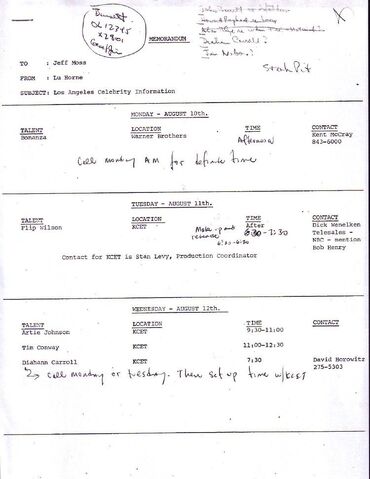 Burnett
OL 12345
X2901
MEMORANDUM
Stash Pit
TO : Jeff Moss
FROM : Lu Horne
SUBJECT: Los Angeles Celebrity Information
MONDAY - AUGUST 10th.
TALENT LOCATION TIME CONTACT
Bonanza Warner Brothers Afternoon Kent McCray
843-6000
Call Monday AM for definite time
TUESDAY - AUGUST 11th.
TALENT LOCATION TIME CONTACT
Flip Wilson KCET Make-up and After Dick Wenelken
rehearse 6:30-7:30 Telesales -
6:00-6:30 NBC - mention
Bob Henry
Contact for KCET is Stan Levy, Production Coordinator
WEDNESDAY - AUGUST 12th.
TALENT LOCATION TIME CONTACT
Artie Johnson KCET 9:30-11:00
Tim Conway KCET 11:00-12:30
Diahann Carroll KCET 7:30 David Horowitz
275-5303
Call Monday or Tuesday. Then set up time w/KCET